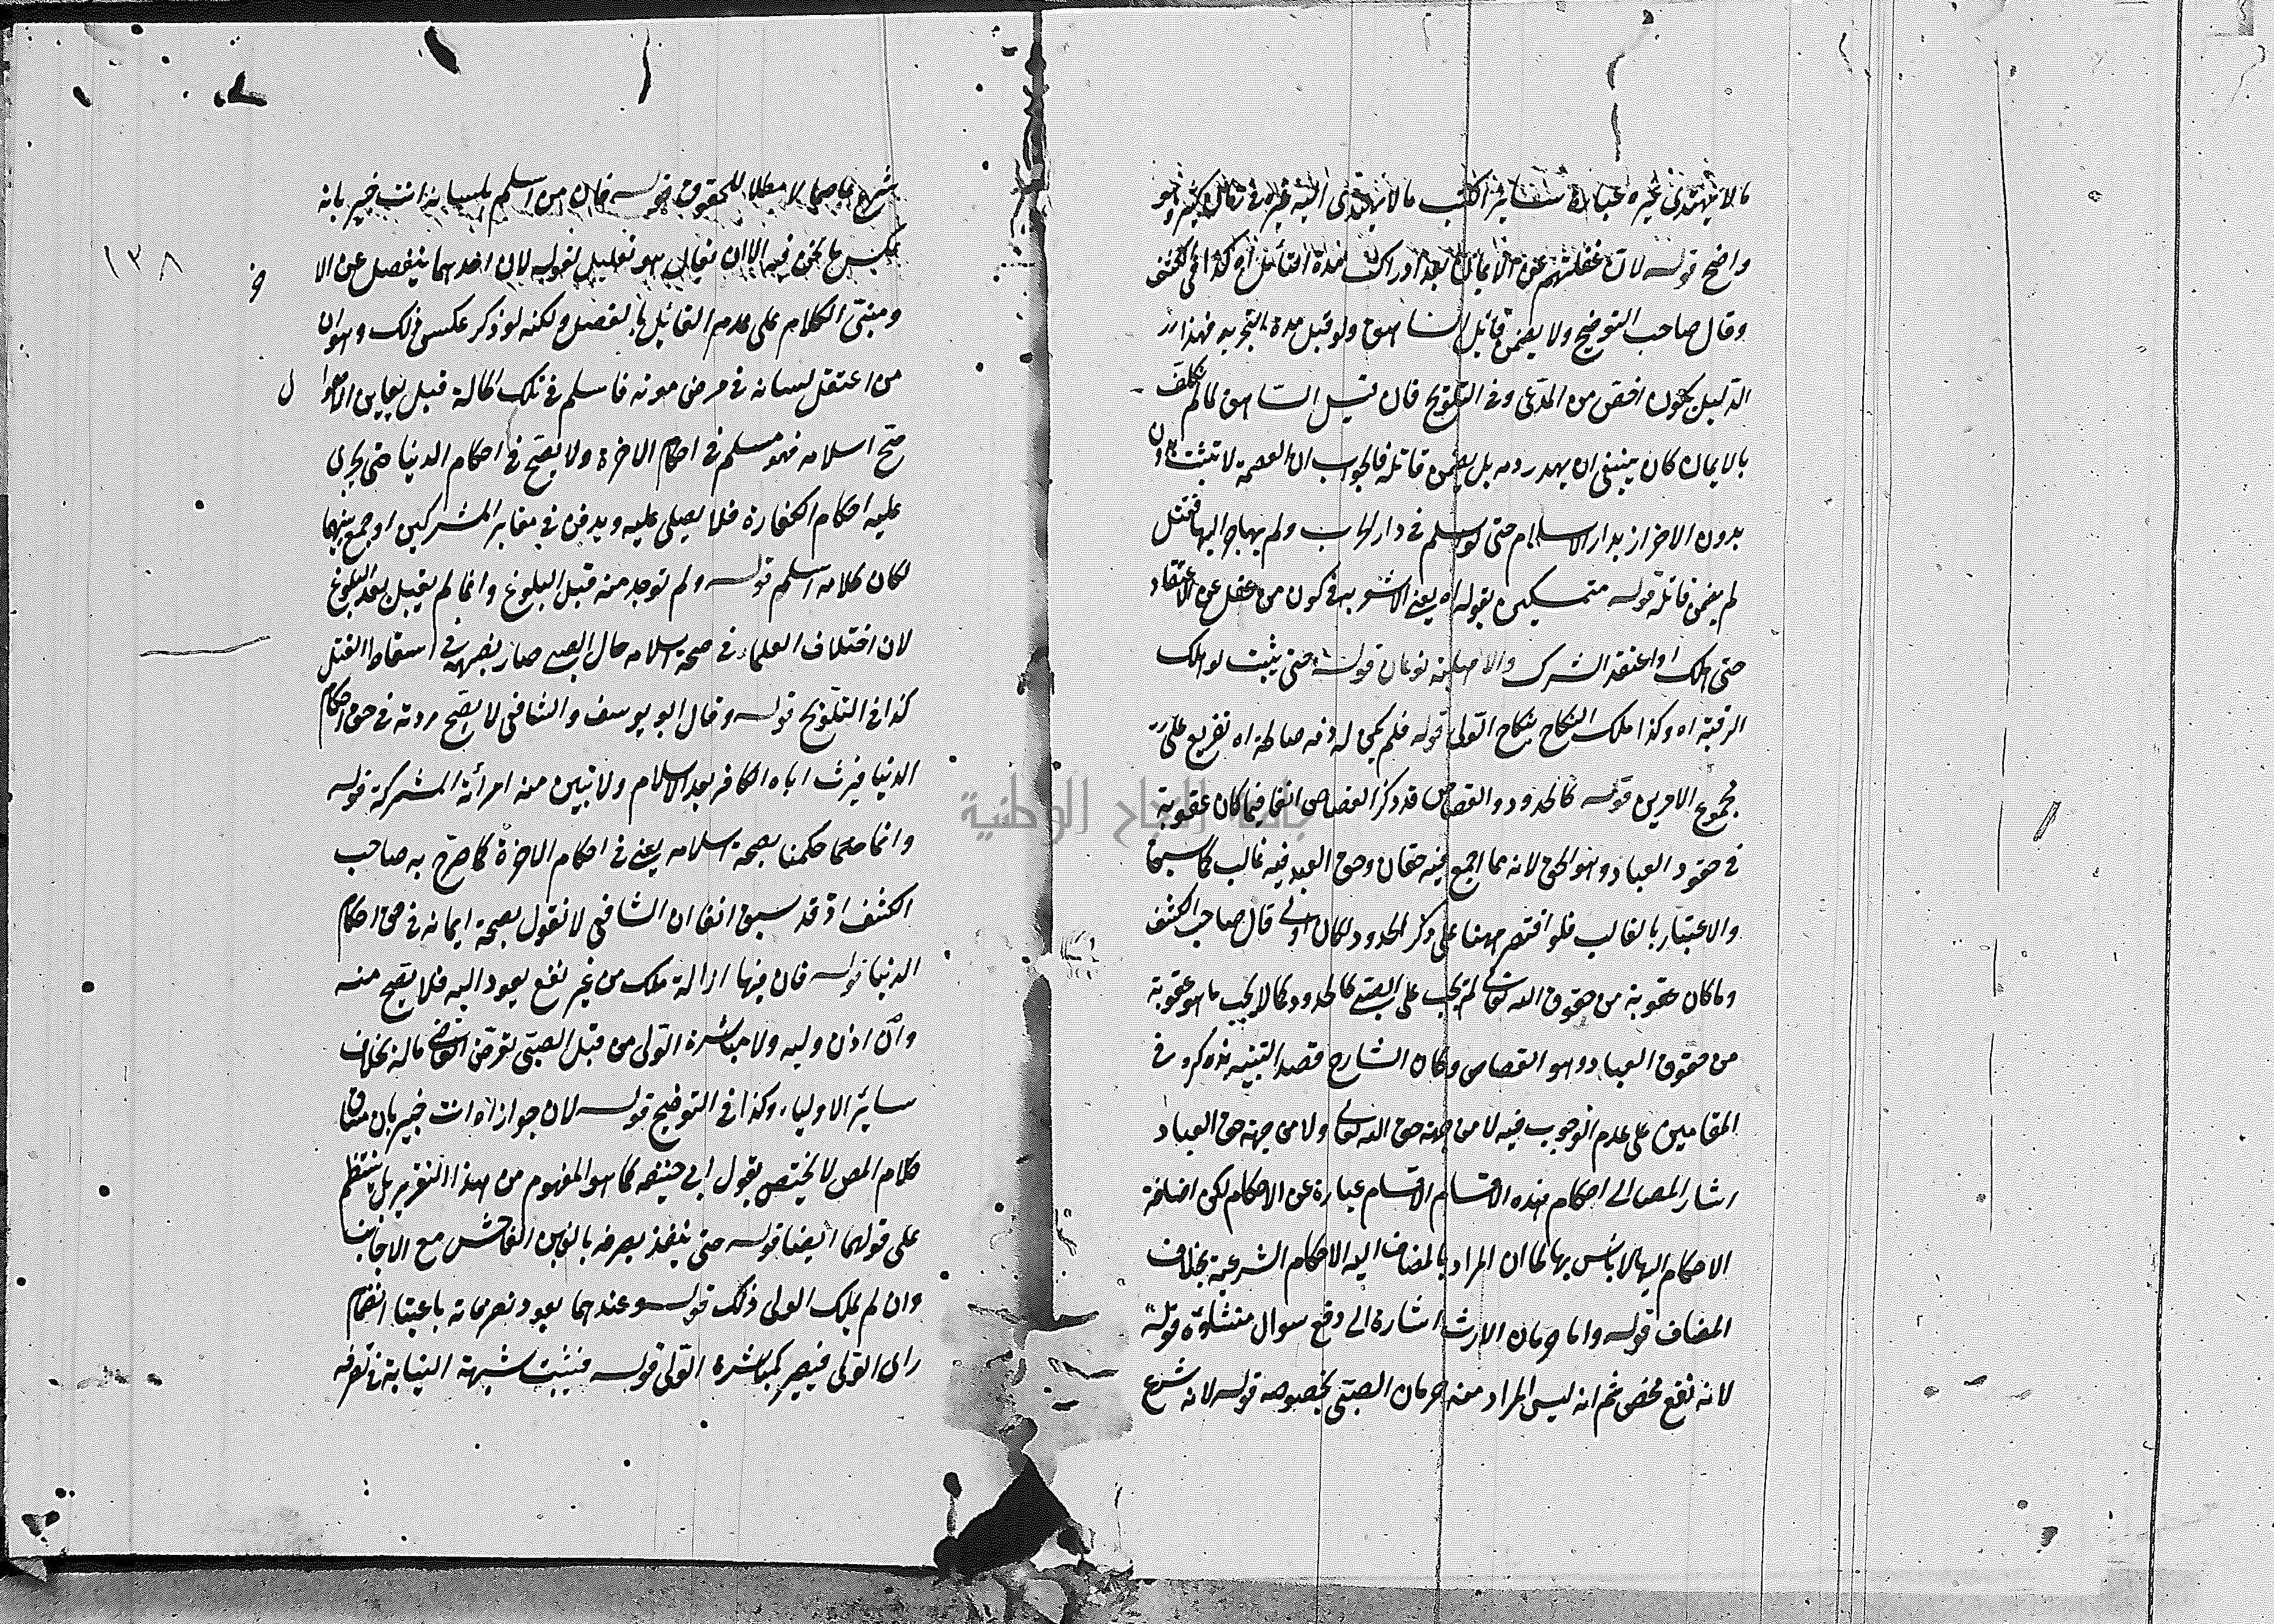 ما لا يهتدى غيره ما لا يهتدى اليه غيره فى زمان كثير وهو
واضح قوله لان غفلتهم عن الايمان بعد ادراك مدة التأمل اه كذا فى الكشف
وقال صاحب التوضيح ولا يضمن قاتل الشاهق ولو قبل مدة التجربه فهذا
الدليل يكون اخص من المدعى وفى التلويح فان قيل الشاهق لما لم يكلف
بالايمان كان ينبغى ان يهدر دمه بل يضمن قاتله فالجواب ان العصمة لا تثبت بدون
بدون الاحراز بدار الاسلام حتى لو اسلم فى دار الحرب ولم يهاجر اليها فقتل
لم يضمن قاتله قوله متمسكين بقوله اه يعنى الاشعريه فى كون من غفل عن الاعتقاد
حتى هلك او اعتقد الشرك والاهلية نوعان قوله حتى يثبت له ملك
الرقبة اه وكذا ملك النكاح بنكاح الولى قوله فلم يكن له ذمه صالحة اه تفريع على
مجموع الامرين قوله كالحدود والقصاص قد ذكر القصاص انفا فيما كان عقوبة
فى حقوق العباد وهو الحق لانه مما اجمع فيه حقان وحق العبد فيه غالب كما سبق
والاعتبار بالغالب فلو اقتصر ههنا على ذكر الحدود لكان اولى قال صاحب الكشف
وما كان عقوبة من حقوق الله تعالى لم يجب على الصبى كالحدود كما لا يجب ما هو عقوبة
من حقوق العباد وهو القصاص وكان الشارح قصد التنبيه بذكره فى
المقامين على عدم الوجوب فيه لا من جهة حق الله تعالى ولا من جهة حق العباد
اشار المص الى احكام هذه الاقسام الاقسام عبارة عن الاحكام لكن اضافة
الاحكام اليها لا باس بها لما ان المراد بالمضاف اليه الاحكام الشرعية بخلاف
المضاف قوله واما حرمان الارث اشارة الى دفع سوال منشاؤه قوله
لانه نفع محض ثم انه ليس المراد منه حرمان الصبى بخصوصه قوله لانه شرع
قوله فان من اسلم بلسانه انت خبير بانه
ليس مما نحن فيه الا ان يقال هو تعليل لقوله لان احدهما ينفصل عن الا خ
ومبنى الكلام على عدم القائل بالفصل ولكنه لو ذكر عكس ذلك وهو ان
من اعتقل لسانه فى مرض موته فاسلم فى تلك الحالة قبل يعاين الاهوا ل
صح اسلامه فهو مسلم فى احكام الاخرة ولا يصح فى احكام الدنيا حتى يجرى
عليه احكام الكفارة فلا يصلى عليه ويدفن فى مقابر المشركين او جمع بينهما
لكان كلامه اسلم قوله ولم توجد منه قبل البلوغ وانما لم يقبل بعد البلوغ
لان اختلاف العلماء فى صحة اسلامه حال الصبى صار شبهة فى اسقاط القتل
كذا فى التلويح قوله وقال ابو يوسف والشافعى لا يصح ردته فى حق احكام
الدنيا فيرث اباه الكافر بعد الاسلام ولا تبين منه امرأته المشركة قوله
وانما حكمنا بصحة اسلامه يعنى فى احكام الاخرة كما صرح به صاحب
الكشف اذ قد سبق انفا ان الشافعى لا نقول بصحة ايمانه فى حق احكام
الدنيا قوله فان فيها ازالة ملك من غير نفع يعود اليه فلا يصح منه
وان اذن وليه ولا مباشرة الولى من قبل الصبى بقرض القاضى ماله بخلاف
ساير الاولياء وكذا فى التوضيح قوله لان جوازه اه انت خبير بان سياق
كلام المص لا يختص بقول ابى حنيفه كما هو المفهوم من هذا التقرير بل ينتظم
على قولهما ايضا قوله حتى ينفذ تصرفه بالغبن الفاحش مع الاجانب
وان لم يملك الولى ذلك قوله وعندهما يعود تصرفاته باعتبار انضمام
راى الولى فيصير كمباشرة الولى قوله فيثبت شبهة النيابة فى تصرفه
١٣٨
جامعة النجاح الوطنية